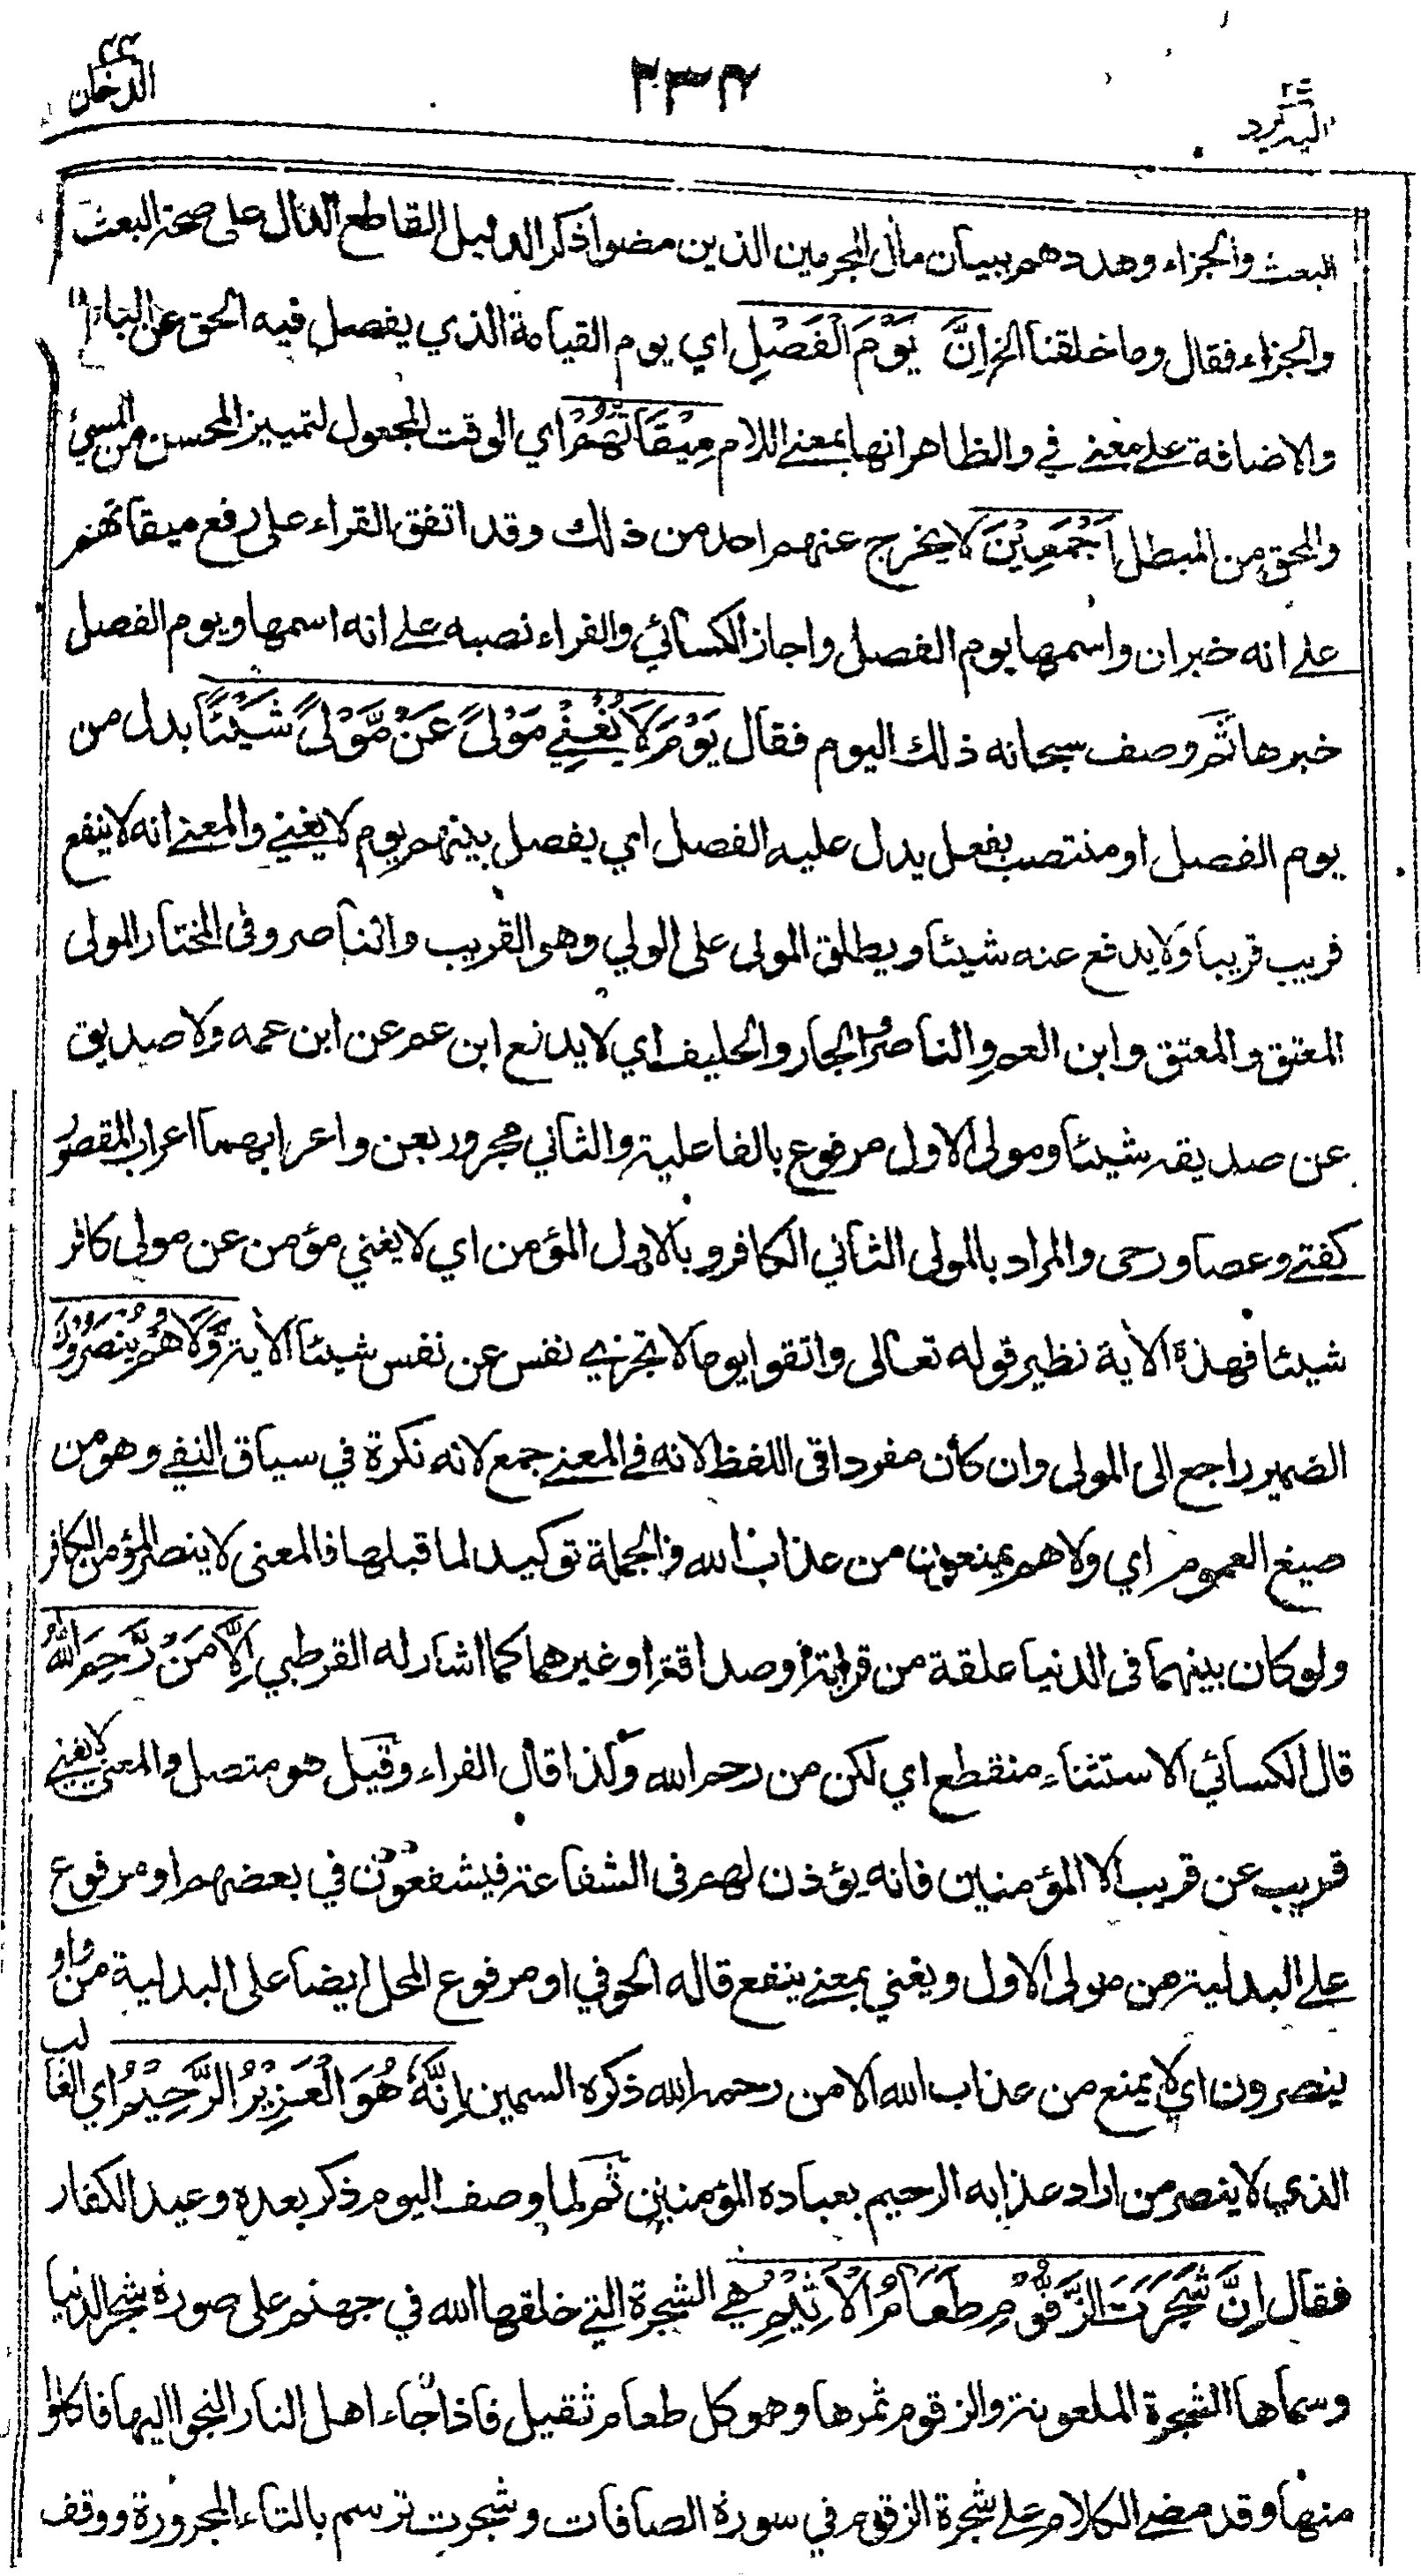 اليه يرد ٢٥
٢٣٤
الدخان ٤٤
البعث والجزاء وهددهم ببيان مآل المجرمين الذين مضوا ذكر الدليل القاطع الدال على صحة البعث
والجزاء فقال وما خلقنا الخ اِنَّ يَوْمَ الْفَصْلِ اي يوم القيامة الذي يفصل فيه الحق عن الباطل
والاضافة على معنى في والظاهر انها بمعنى اللام مِيْقَاتُهُمْ اي الوقت المجعول لتمييز المحسن من المسيئ
والمحق من المبطل اَجْمَعِيْنَ لا يخرج عنهم احد من ذلك وقد اتفق القراء على رفع ميقاتهم
على انه خبر ان واسمها يوم الفصل واجاز الكسائي والفراء نصبه على انه اسمها ويوم الفصل
خبرها ثم وصف سبحانه ذلك اليوم فقال يَوْمَ لَا يُغْنِيْ مَوْلًى عَنْ مَّوْلًى شَيْئًا بدل من
يوم الفصل او منتصب بفعل يدل عليه الفصل اي يفصل بينهم يوم لا يغني والمعنى انه لا ينفع
قريب قريبا ولا يدفع عنه شيئا ويطلق المولى على الولي وهو القريب والناصر وفى المختار المولى
المعتق والمعتق وابن العم والناصر والجار والحليف اي لا يدفع ابن عم عن ابن عمه ولا صديق
عن صديقه شيئا ومولى الاول مرفوع بالفاعلية والثاني مجرور بعن واعرابهما اعراب المقصور
كفتى وعصا ورحى والمراد بالمولى الثاني الكافر وبالاول المؤمن اي لا يغني مؤمن عن مولى كافر
شيئا فهذه الأية نظير قوله تعالى واتقوا يوما لا تجزي نفس عن نفس شيئا الأية وَّلَا هُمْ يُنْصَرُوْنَ
الضمير راجع الى المولى وان كان مفردا فى اللفظ لانه في المعنى جمع لانه نكرة في سياق النفي وهو من
صيغ العموم اي ولا هم يمنعون من عذاب الله والجملة توكيد لما قبلها فالمعنى لا ينصر المؤمن الكافر
ولو كان بينهما فى الدنيا علقة من قرابة او صداقة او غيرهما كما اشار له القرطبي اِلَّا مَنْ رَّحِمَ اللّٰهُ
قال الكسائي الاستثناء منقطع اي لكن من رحم الله وكذا قال الفراء وقيل هو متصل والمعنى لا يغني
قريب عن قريب الا المؤمنين فانه يؤذن لهم فى الشفاعة فيشفعون في بعضهم او مرفوع
على البدلية من مولى الاول ويغني بمعنى ينفع قاله الحوفي او مرفوع المحل ايضا على البدلية من واو
ينصرون اي لا يمنع من عذاب الله الا من رحمه الله ذكره السمين اِنَّهٗ هُوَ الْعَزِيْزُ الرَّحِيْمُ اي الغالب
الذي لا ينصر من اراد عذابه الرحيم بعباده المؤمنين ثم لما وصف اليوم ذكر بعده وعيد الكفار
فقال اِنَّ شَجَرَتَ الزَّقُّوْمِ طَعَامُ الْاَثِيْمِ هي الشجرة التي خلقها الله في جهنم على صورة شجر الدنيا
وسماها الشجرة الملعونة والزقوم ثمرها وهو كل طعام ثقيل فاذا جاء اهل النار التجوا اليها فاكلوا
منها وقد مضى الكلام على شجرة الزقوم في سورة الصافات وشجرت ترسم بالتاء المجرورة ووقف